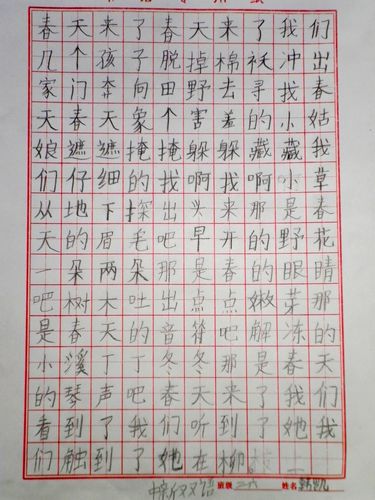 春天来了春天来了我们
几个孩子脱掉棉袄冲出
家门奔向田野去寻找春
天春天象个害羞的小姑
娘遮遮掩掩躲躲藏藏我
们仔细的找啊找啊小草
从地下探出头来那是春
天的眉毛吧早开的野花
一朵两朵那是春的眼睛
吧树木吐出点点嫩芽那
是春天的音符吧解冻的
小溪丁丁冬冬那是春天
的琴声吧春天来了我们
看到了我们听到了她我
们触到了她在柳
班级 二六 姓名 韩凯